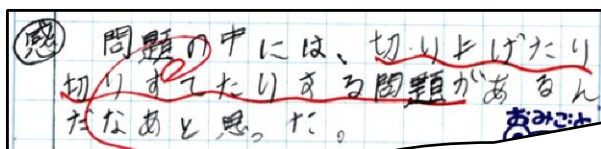 感 問題の中には、切り上げたり
切りすてたりする問題があるん
だなあと思った。
おみごと